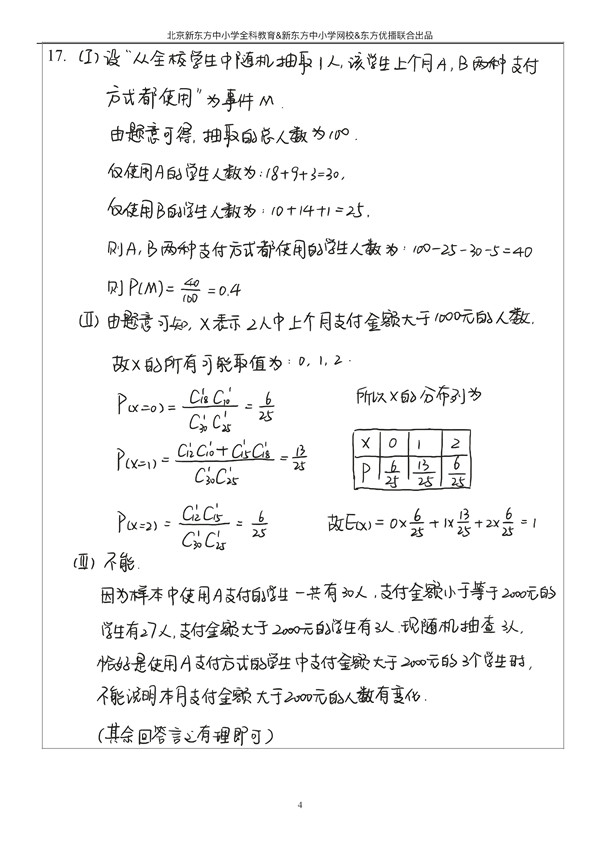 北京新东方中小学全科教育&新东方中小学网校&东方优播联合出品
17. (Ⅰ) 设"从全校学生中随机抽取1人,该学生上个月A,B两种支付
方式都使用"为事件M.
由题意可得,抽取的总人数为100.
仅使用A的学生人数为:18+9+3=30,
仅使用B的学生人数为:10+14+1=25,
则A,B两种支付方式都使用的学生人数为:100-25-30-5=40
则P(M)=40/100=0.4
(Ⅱ) 由题意可知,X表示2人中上个月支付金额大于1000元的人数.
故X的所有可能取值为:0,1,2.
P(X=0)=C₁₈¹C₁₀¹/C₃₀¹C₂₅¹=6/25
所以X的分布列为
P(X=1)=C₁₂¹C₁₀¹+C₁₅¹C₁₈¹/C₃₀¹C₂₅¹=13/25
X 0 1 2
P 6/25 13/25 6/25
P(X=2)=C₁₂¹C₁₅¹/C₃₀¹C₂₅¹=6/25
故E(X)=0×6/25+1×13/25+2×6/25=1
(Ⅲ) 不能.
因为样本中使用A支付的学生一共有30人,支付金额小于等于2000元的
学生有27人,支付金额大于2000元的学生有3人.现随机抽查3人,
恰好是使用A支付方式的学生中支付金额大于2000元的3个学生时,
不能说明本月支付金额大于2000元的人数有变化.
(其余回答言之有理即可)
4